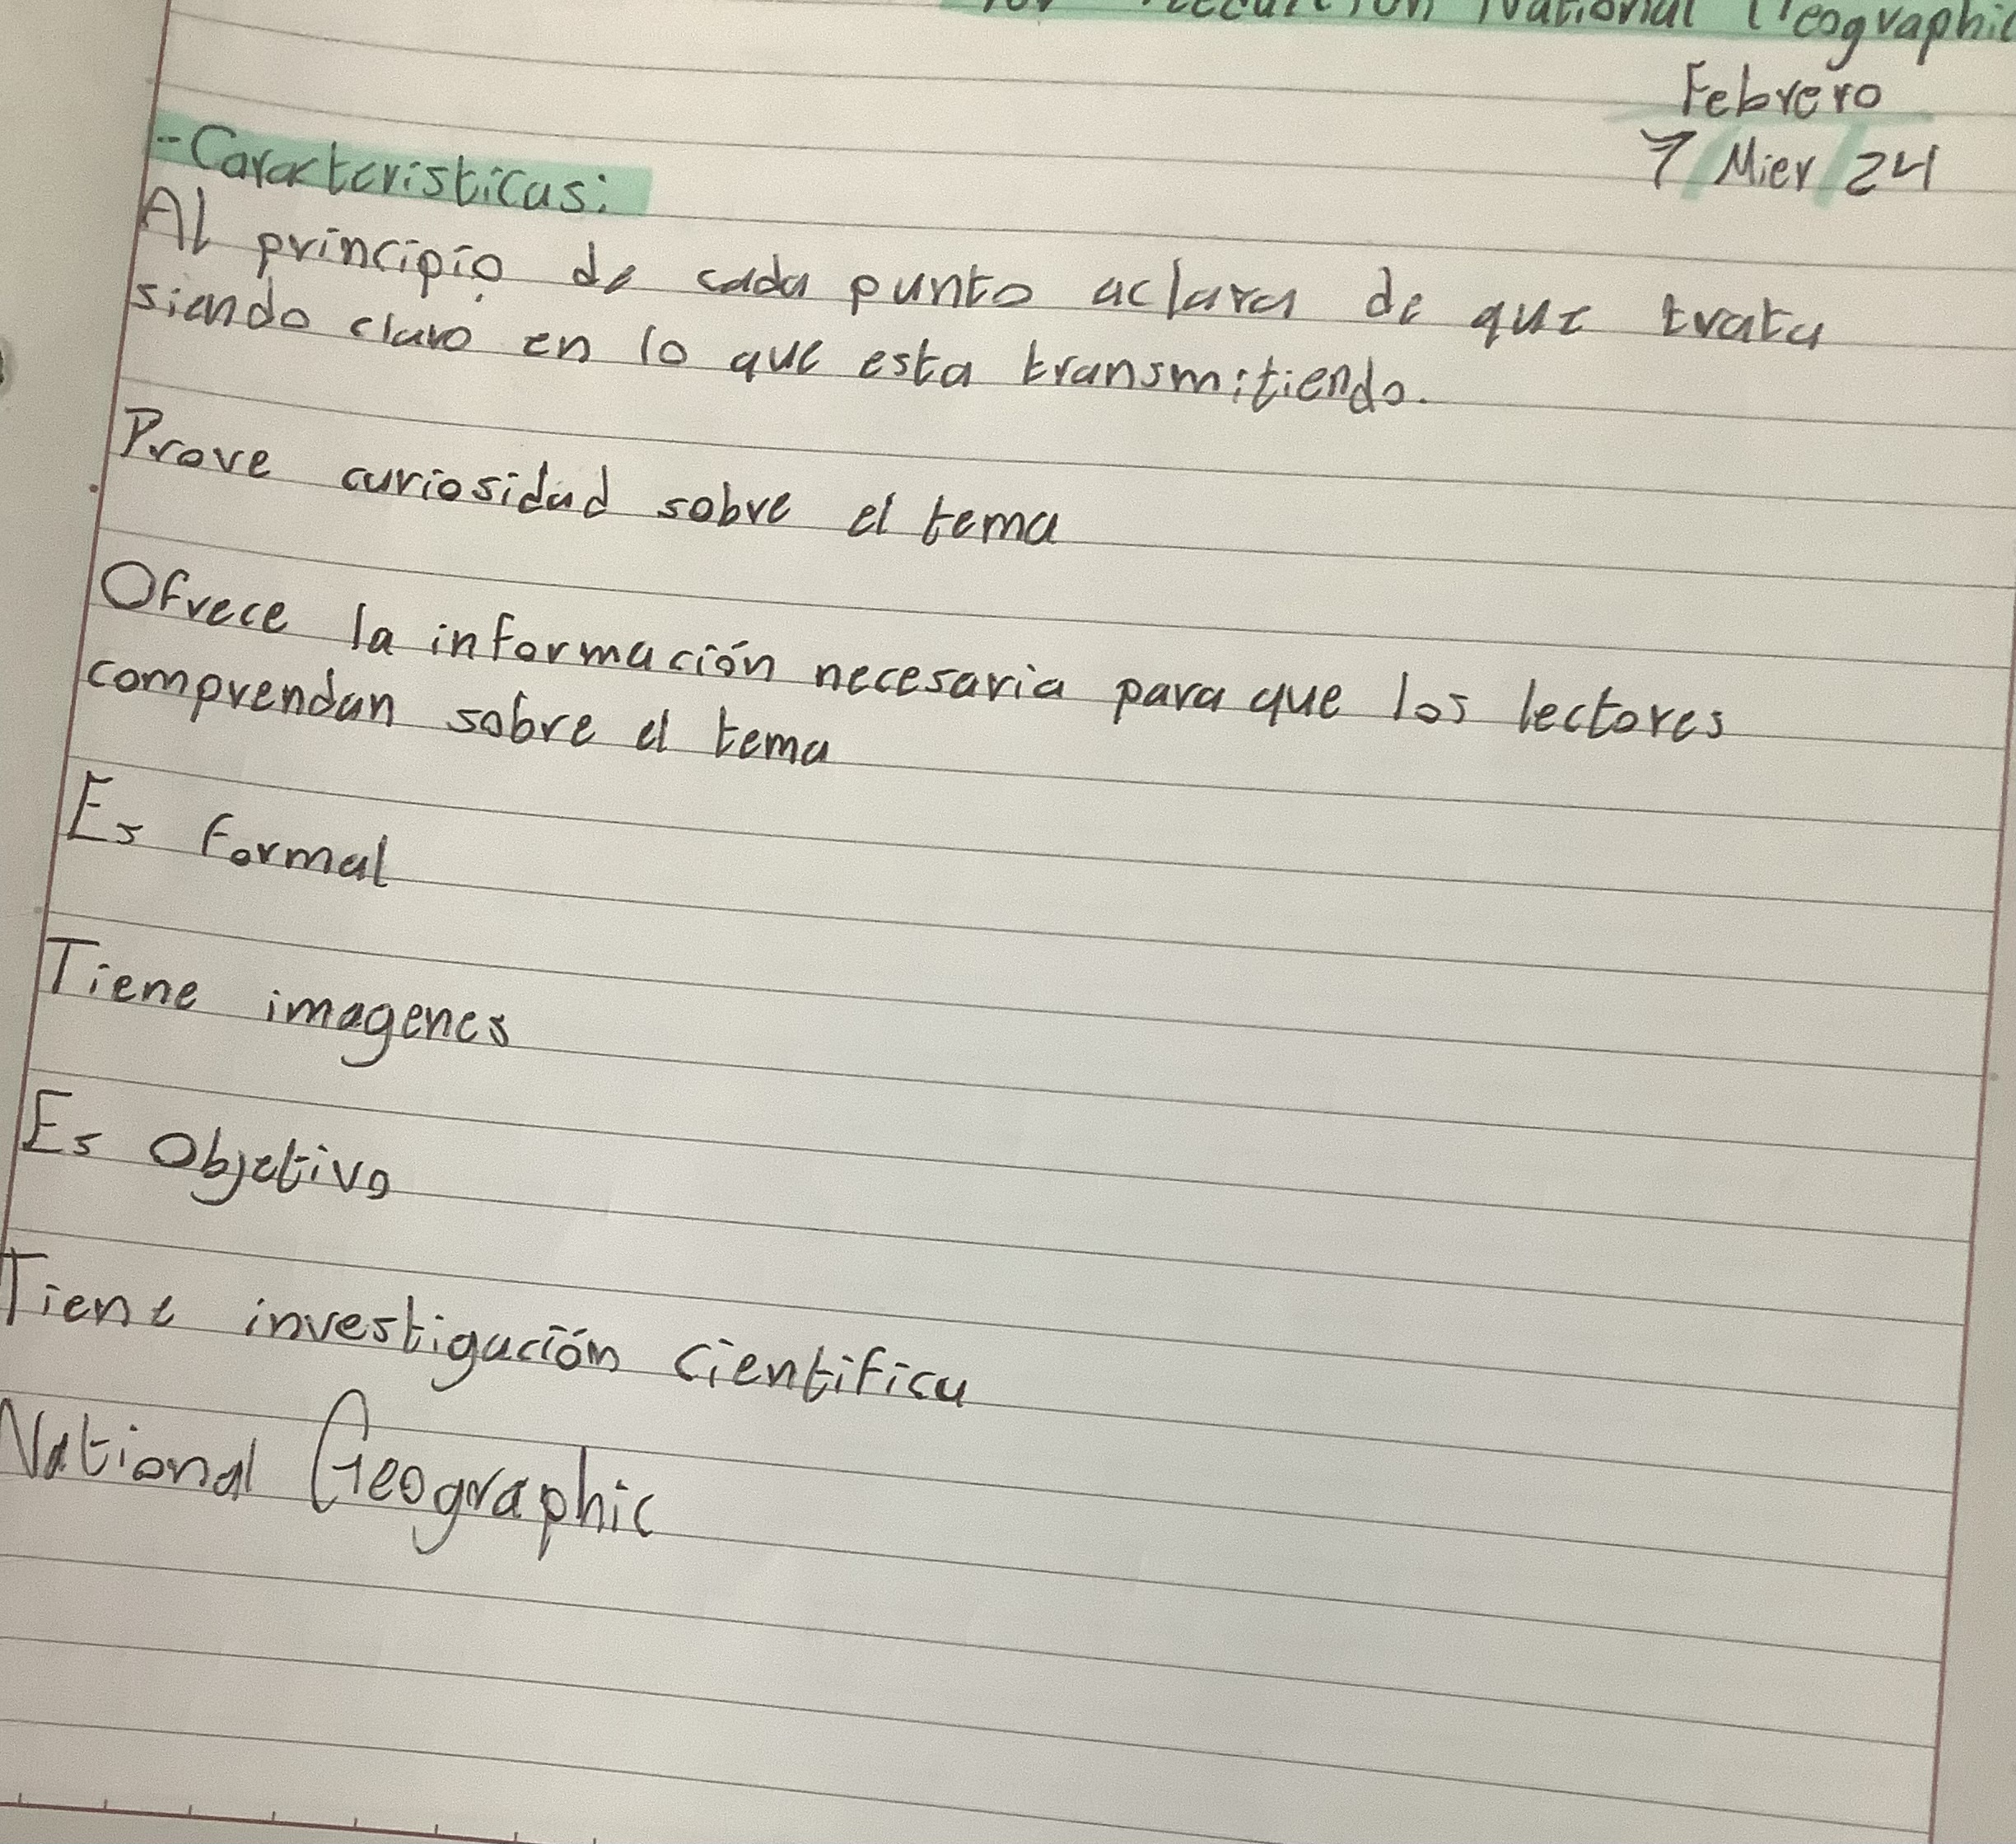 National Geographic
Febrero
7/Mier/24
-Caracteristicas:
Al principio de cada punto aclara de que trata
siendo claro en lo que esta transmitiendo.
Prove curiosidad sobre el tema
Ofrece la información necesaria para que los lectores
comprendan sobre el tema
Es formal
Tiene imagenes
Es Objetivo
Tiene investigación cientifica
National Geographic